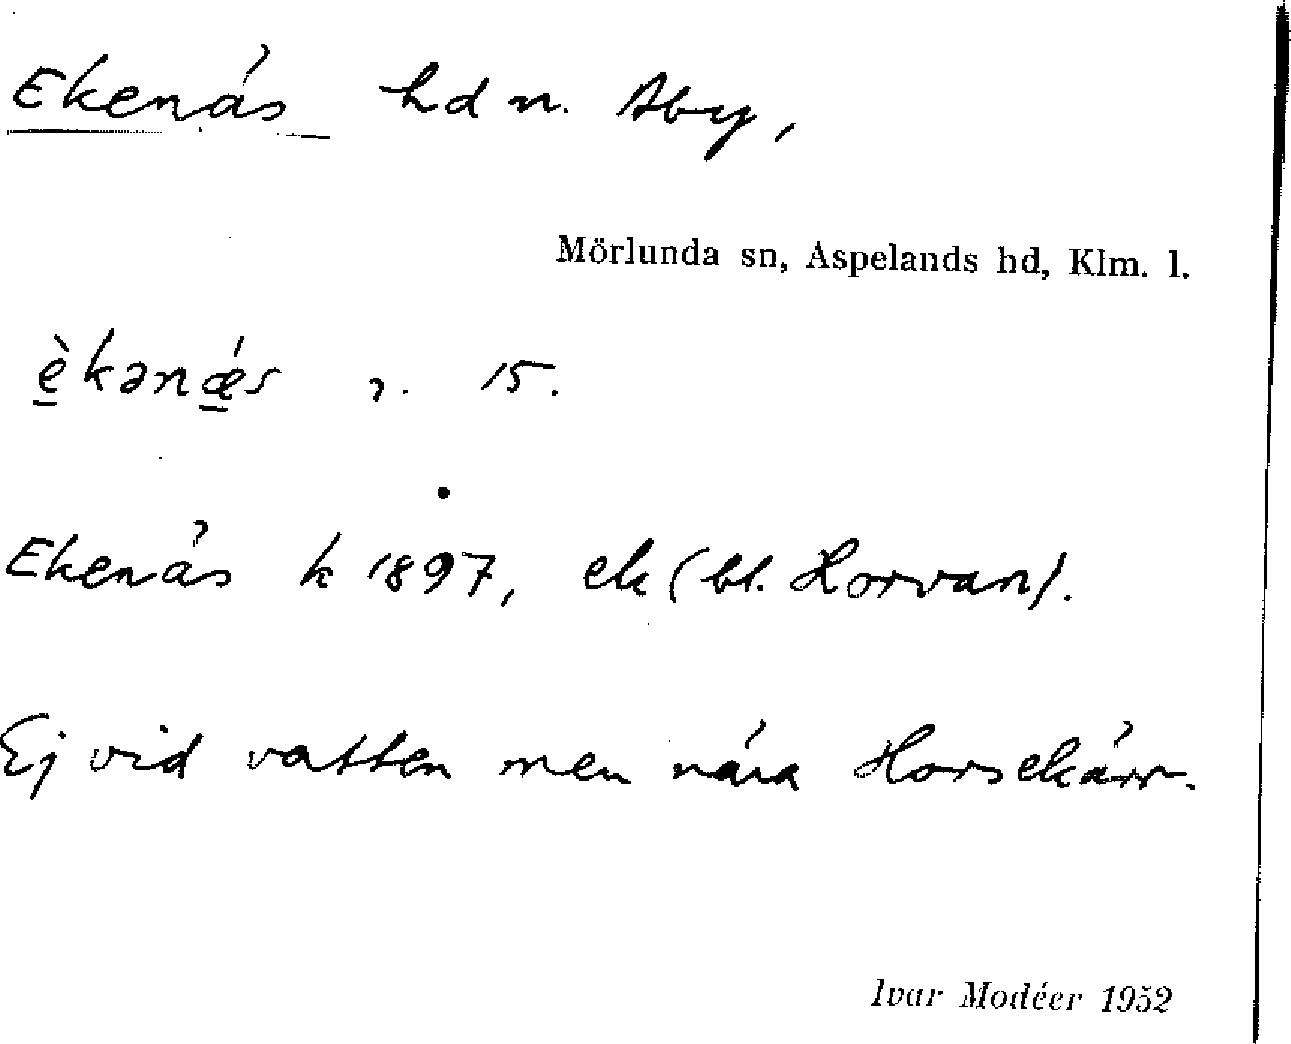 Ekenäs hd n. Åby,
Mörlunda sn, Aspelands hd, Klm. l.
èkənǽs 15.
Ekenäs k 1897, ek (bl. Horvan).
Ej vid vatten men nära Horsekärr.
Ivar Modéer 1952